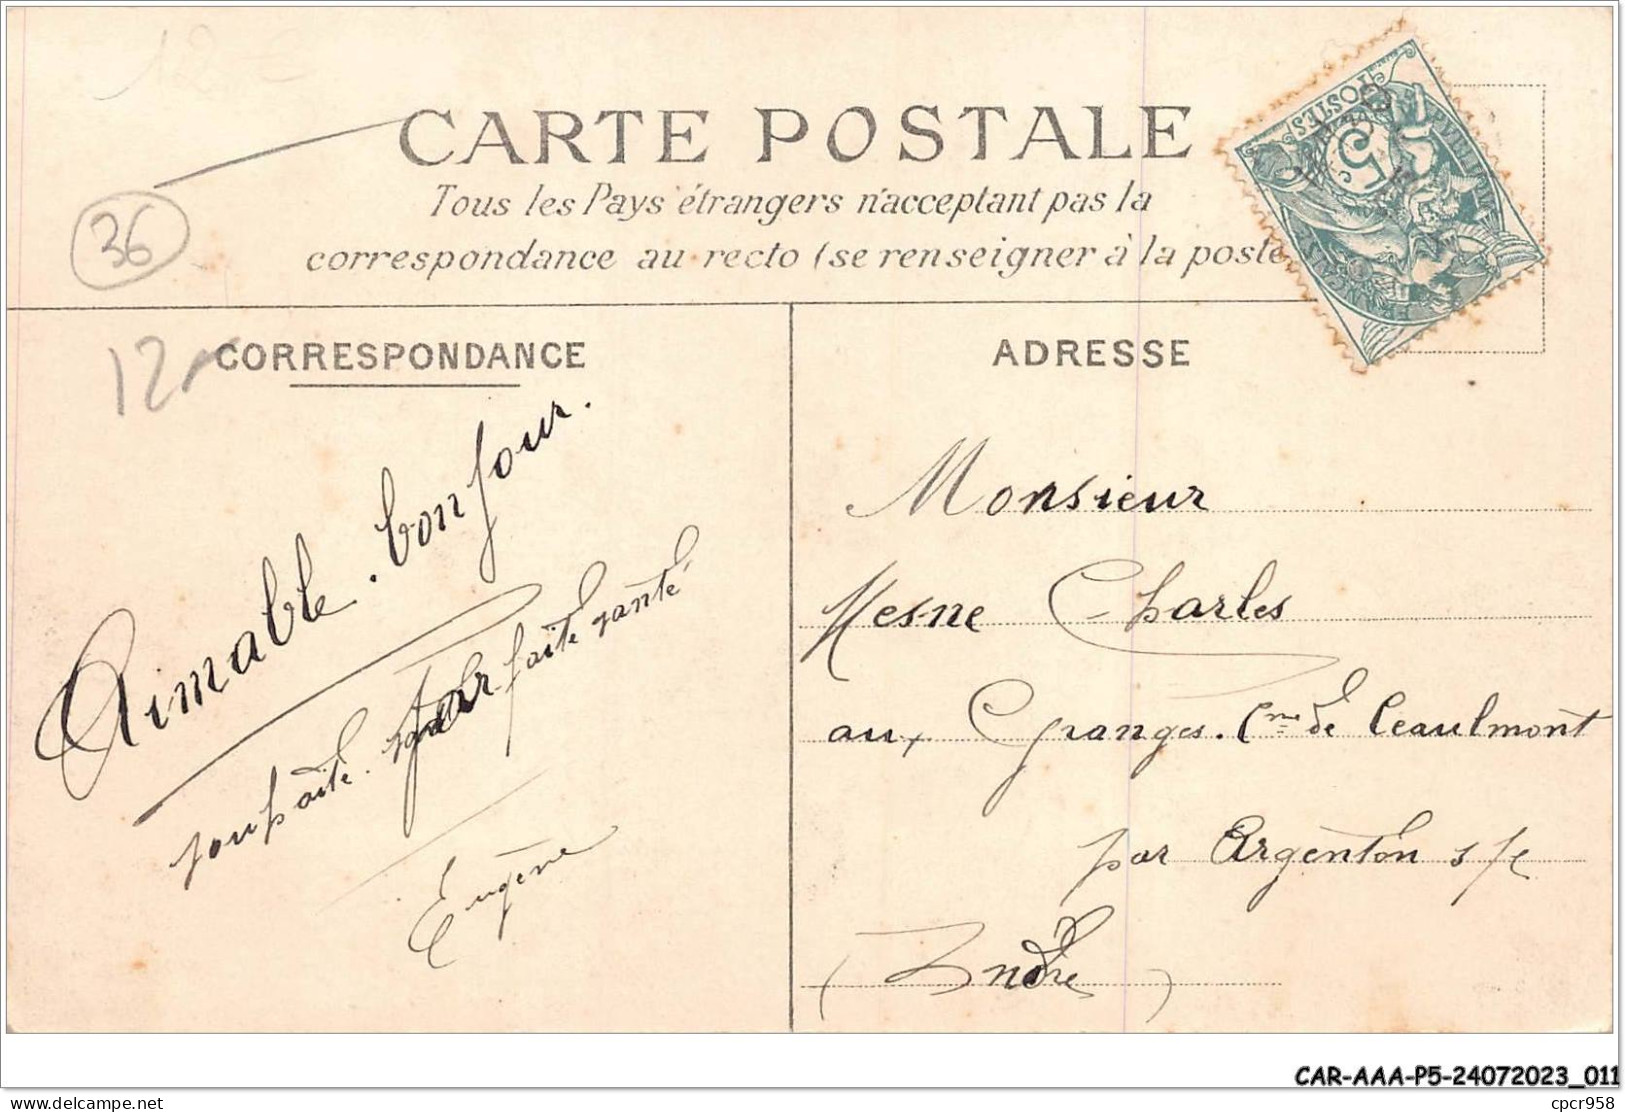 CARTE POSTALE
Tous les Pays étrangers n'acceptant pas la
correspondance au recto (se renseigner à la poste
36
12
CORRESPONDANCE
Aimable. bonjour.
souhaite. parfaite santé
Eugène
ADRESSE
5c
POSTES
Monsieur
Mesne Charles
aux Granges. Cne de Ceaulmont
par Argenton s/c
(Indre)
CAR-AAA-P5-24072023_011
delcampe.net
cpcr958